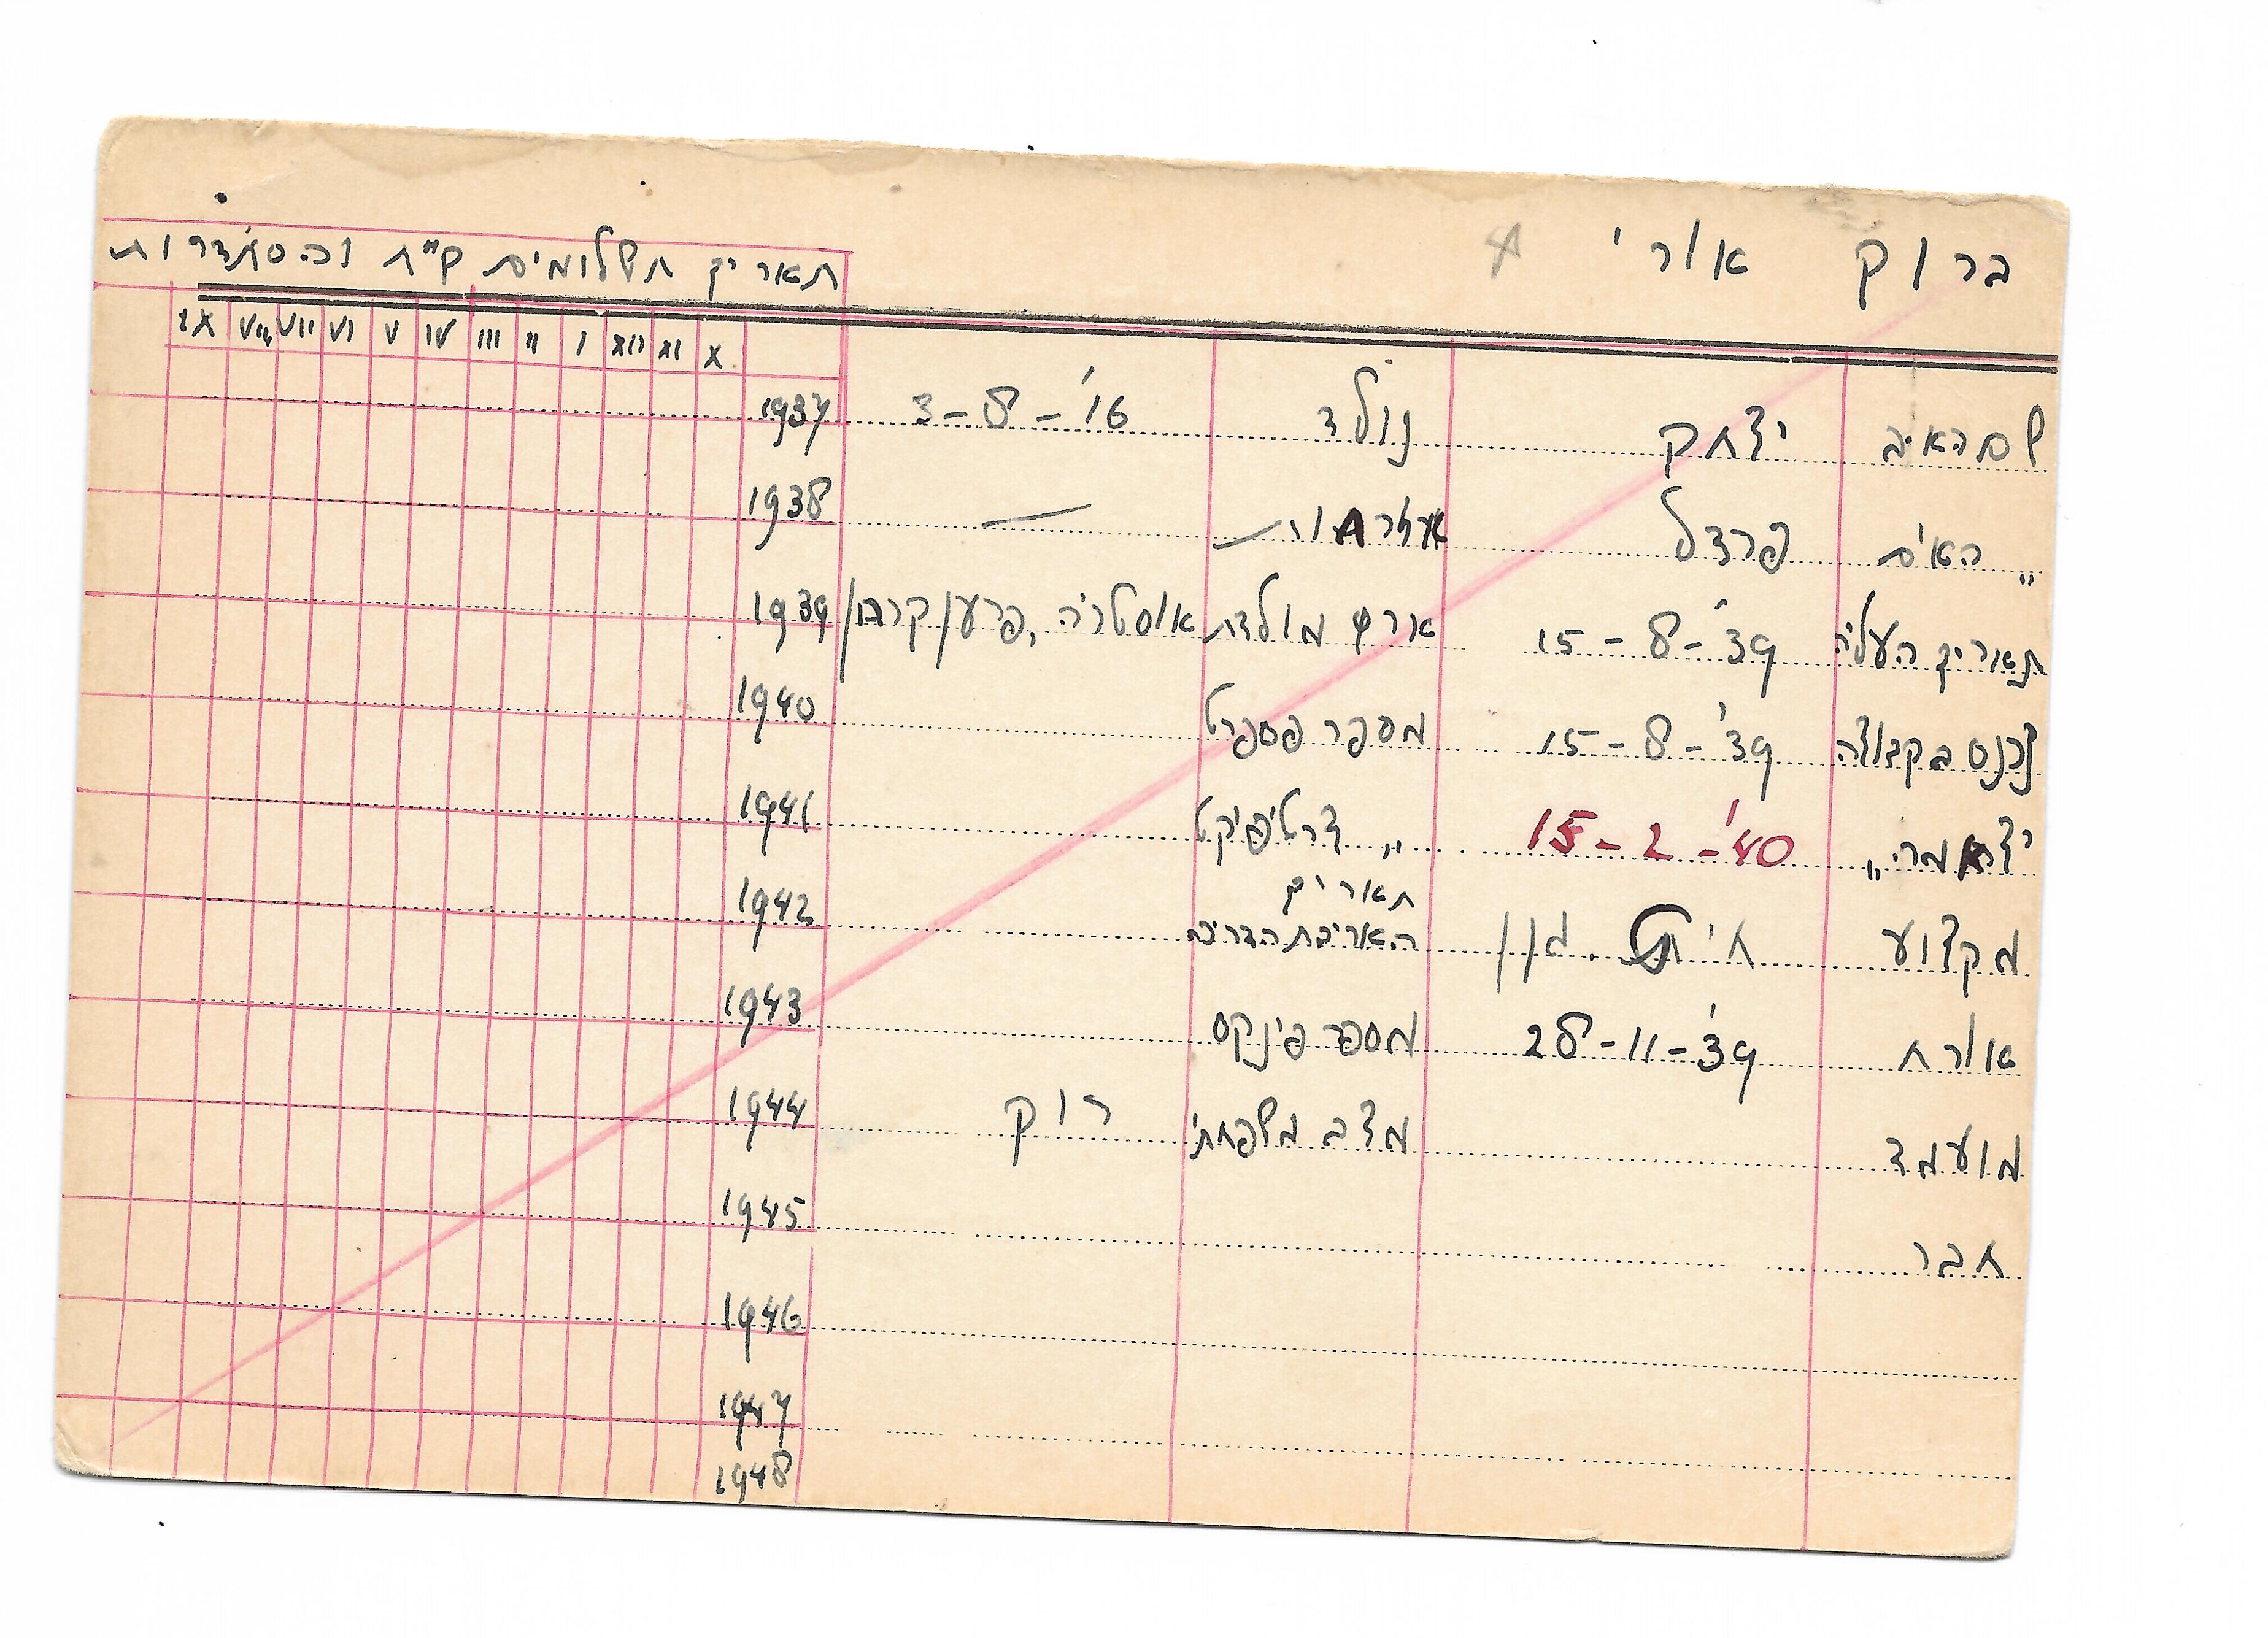 ברוק אורי
תאריך תשלומים ק"ח והסתדרות
X XI XII I II III IV V VI VII VIII IX
שם האב יצחק נולד 3-8-16' 1937
" האם פרדל אזרחות — 1938
תאריך העליה 15-8-39' ארץ מולדת אוסטריה, 1939
נכנס בקבוצה 15-8-39' מספר פספרט 1940
יצא מה " 15-2-40' " צרטיפיקט 1941
תאריך
מקצוע חיט. גנן הארכת הדרכיה 1942
אורח 28-11-39' מספר פינקס 1943
מועמד מצב משפחתי רוק 1944
1945
חבר
1946
1947
1948